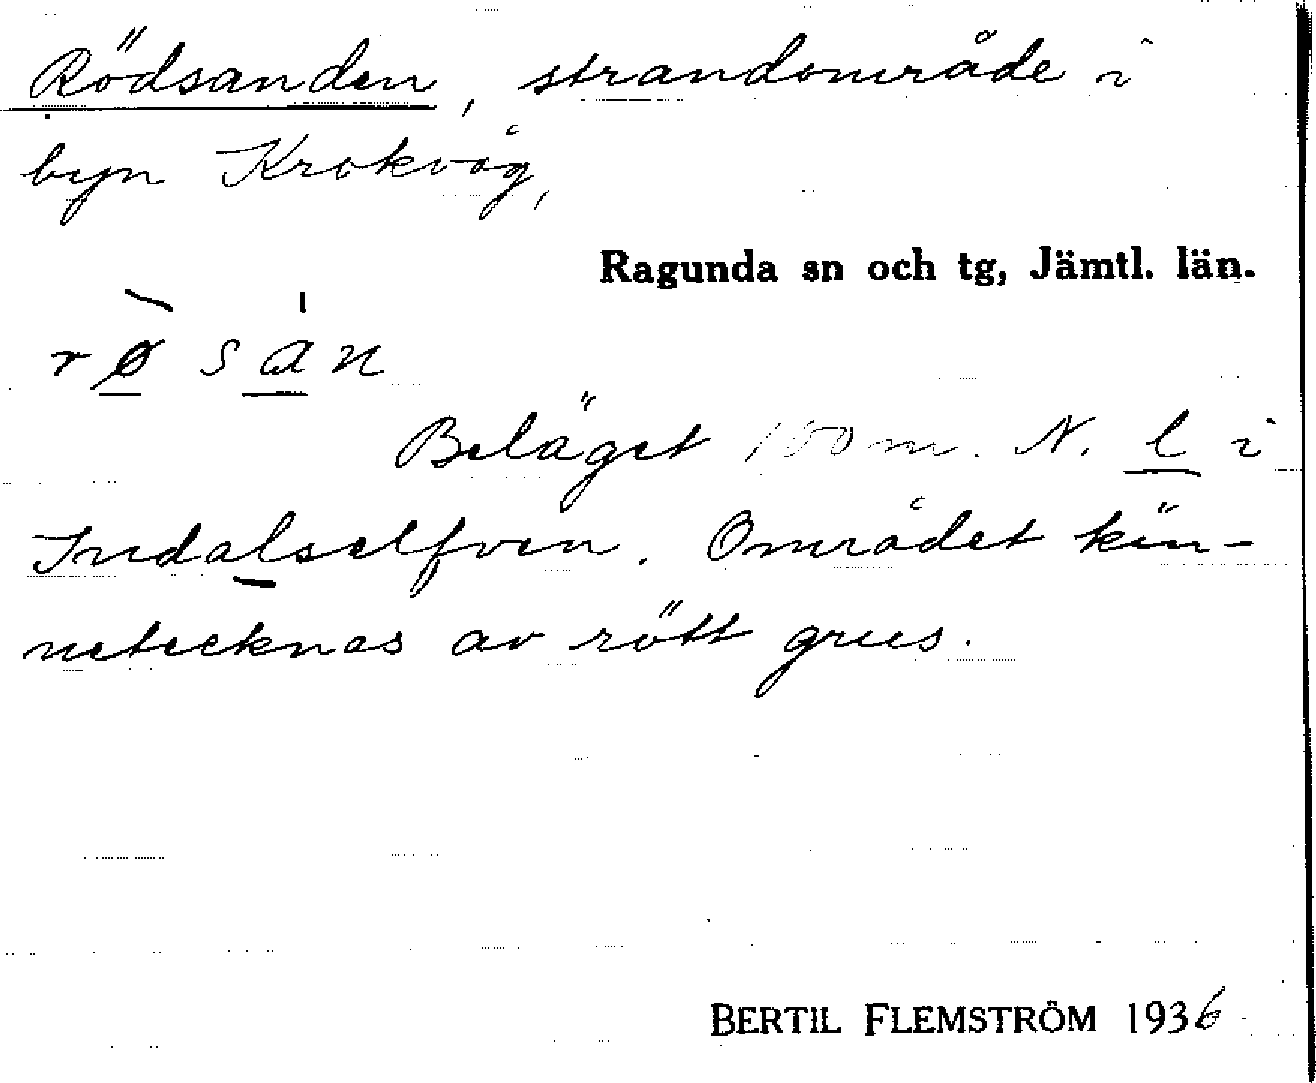 Rödsanden, strandområde i
byn Krokvåg,
Ragunda sn och tg, Jämtl. län.
rø̀ sán
Beläget 150 m. N. l i
Indalselfven. Området kän-
netecknas av rött grus.
BERTIL FLEMSTRÖM 1936